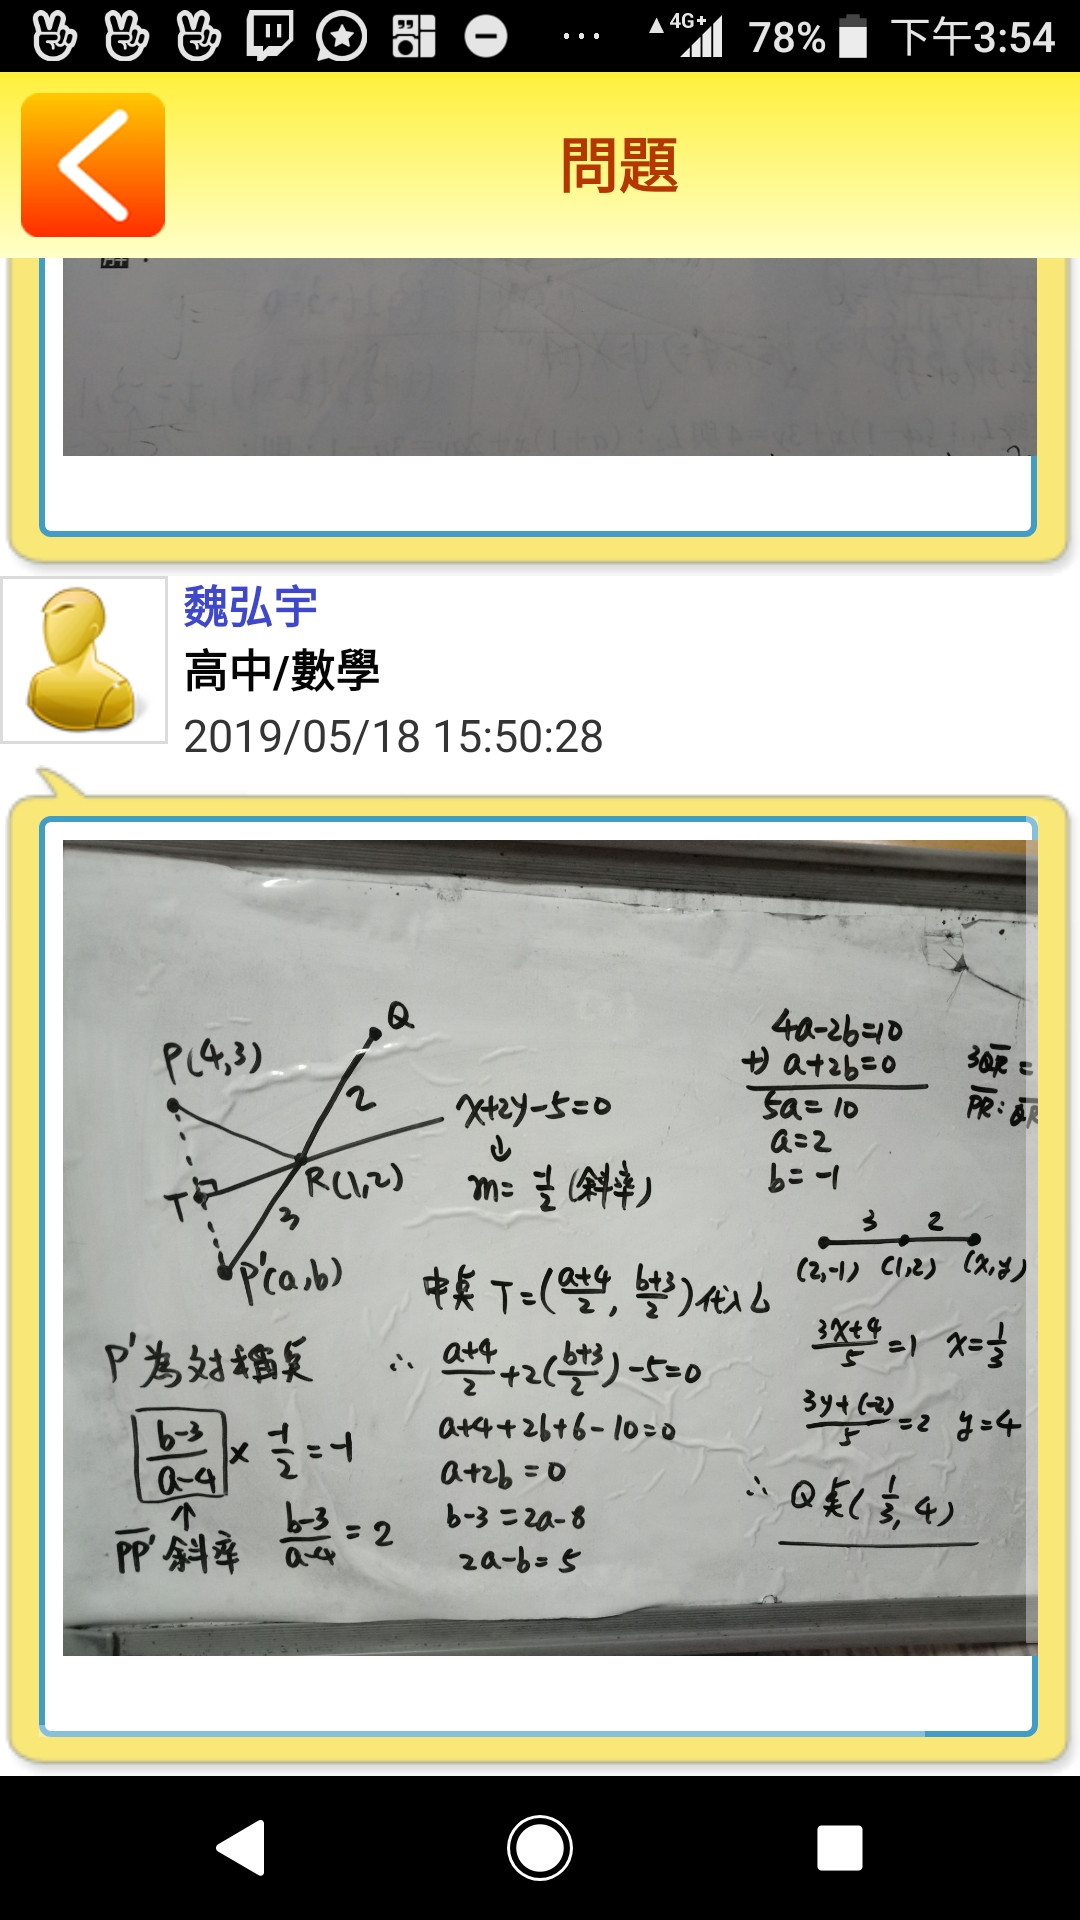 4G+ 78% 下午3:54
問題
解：
魏弘宇
高中/數學
2019/05/18 15:50:28
Q
P(4,3)
2
x+2y-5=0
↓
m= -1/2 (斜率)
R(1,2)
T
3
P'(a,b)
P'為对稱點
b-3/a-4 × -1/2 = -1
↑
PP'斜率 b-3/a-4 = 2
中點 T=(a+4/2, b+3/2)代入L
∴ a+4/2+2(b+3/2)-5=0
a+4+2b+6-10=0
a+2b=0
b-3=2a-8
2a-b=5
4a-2b=10
+) a+2b=0
5a=10
a=2
b=-1
3QR=
PR:QR
3 2
(2,-1) (1,2) (x,y)
3x+4/5=1 x=1/3
3y+(-2)/5=2 y=4
∴ Q點(1/3,4)